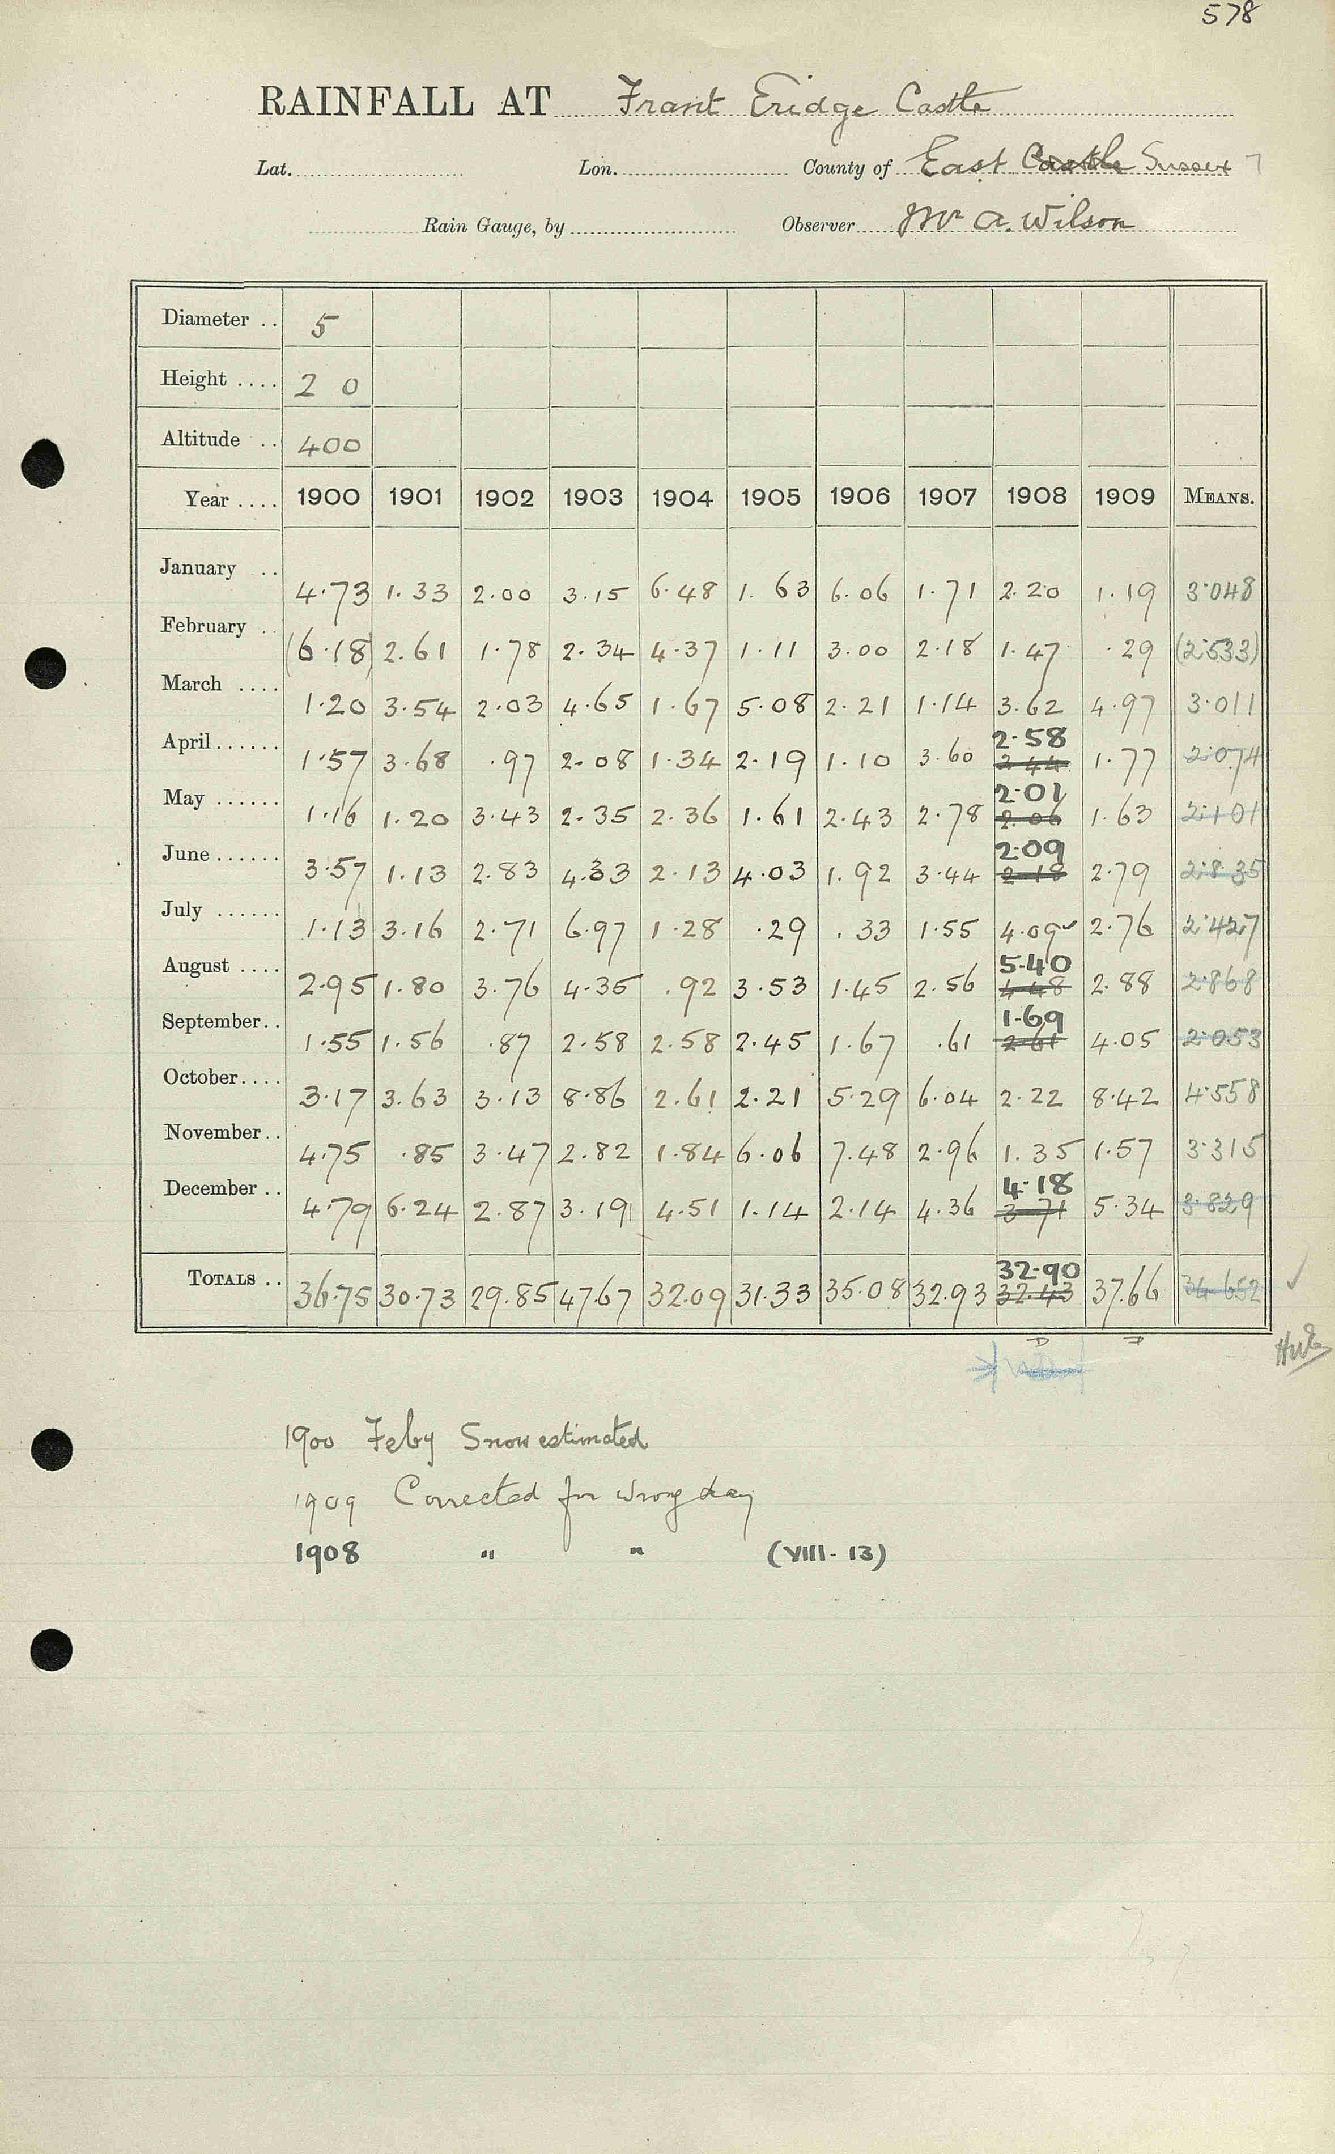 578
RAINFALL AT Frant Eridge Castle
Lat. Lon. County of East Castle Sussex
Rain Gauge, by Observer Mr A. Wilson
Diameter .. 5
Height .... 2 0
Altitude .. 400
Year .... 1900 1901 1902 1903 1904 1905 1906 1907 1908 1909 MEANS.
January .. 4.73 1.33 2.00 3.15 6.48 1.63 6.06 1.71 2.20 1.19 3.048
February .. (6.18) 2.61 1.78 2.34 4.37 1.11 3.00 2.18 1.47 .29 (2.533)
March .... 1.20 3.54 2.03 4.65 1.67 5.08 2.21 1.14 3.62 4.97 3.011
2.58
April...... 1.57 3.68 .97 2.08 1.34 2.19 1.10 3.60 2.44 1.77 2.074
2.01
May ...... 1.16 1.20 3.43 2.35 2.36 1.61 2.43 2.78 2.06 1.63 2.101
2.09
June...... 3.57 1.13 2.83 4.33 2.13 4.03 1.92 3.44 2.18 2.79 2.835
July ...... 1.13 3.16 2.71 6.97 1.28 .29 .33 1.55 4.09 2.76 2.427
5.40
August .... 2.95 1.80 3.76 4.35 .92 3.53 1.45 2.56 4.48 2.88 2.868
1.69
September.. 1.55 1.56 .87 2.58 2.58 2.45 1.67 .61 2.61 4.05 2.053
October.... 3.17 3.63 3.13 8.86 2.61 2.21 5.29 6.04 2.22 8.42 4.558
November.. 4.75 .85 3.47 2.82 1.84 6.06 7.48 2.96 1.35 1.57 3.315
4.18
December .. 4.79 6.24 2.87 3.19 4.51 1.14 2.14 4.36 3.71 5.34 3.829
32.90
TOTALS .. 36.75 30.73 29.85 47.67 32.09 31.33 35.08 32.93 32.43 37.66 34.652
1900 Feby Snow estimated
1909 Corrected for wrong day
1908 " " (VIII-13)